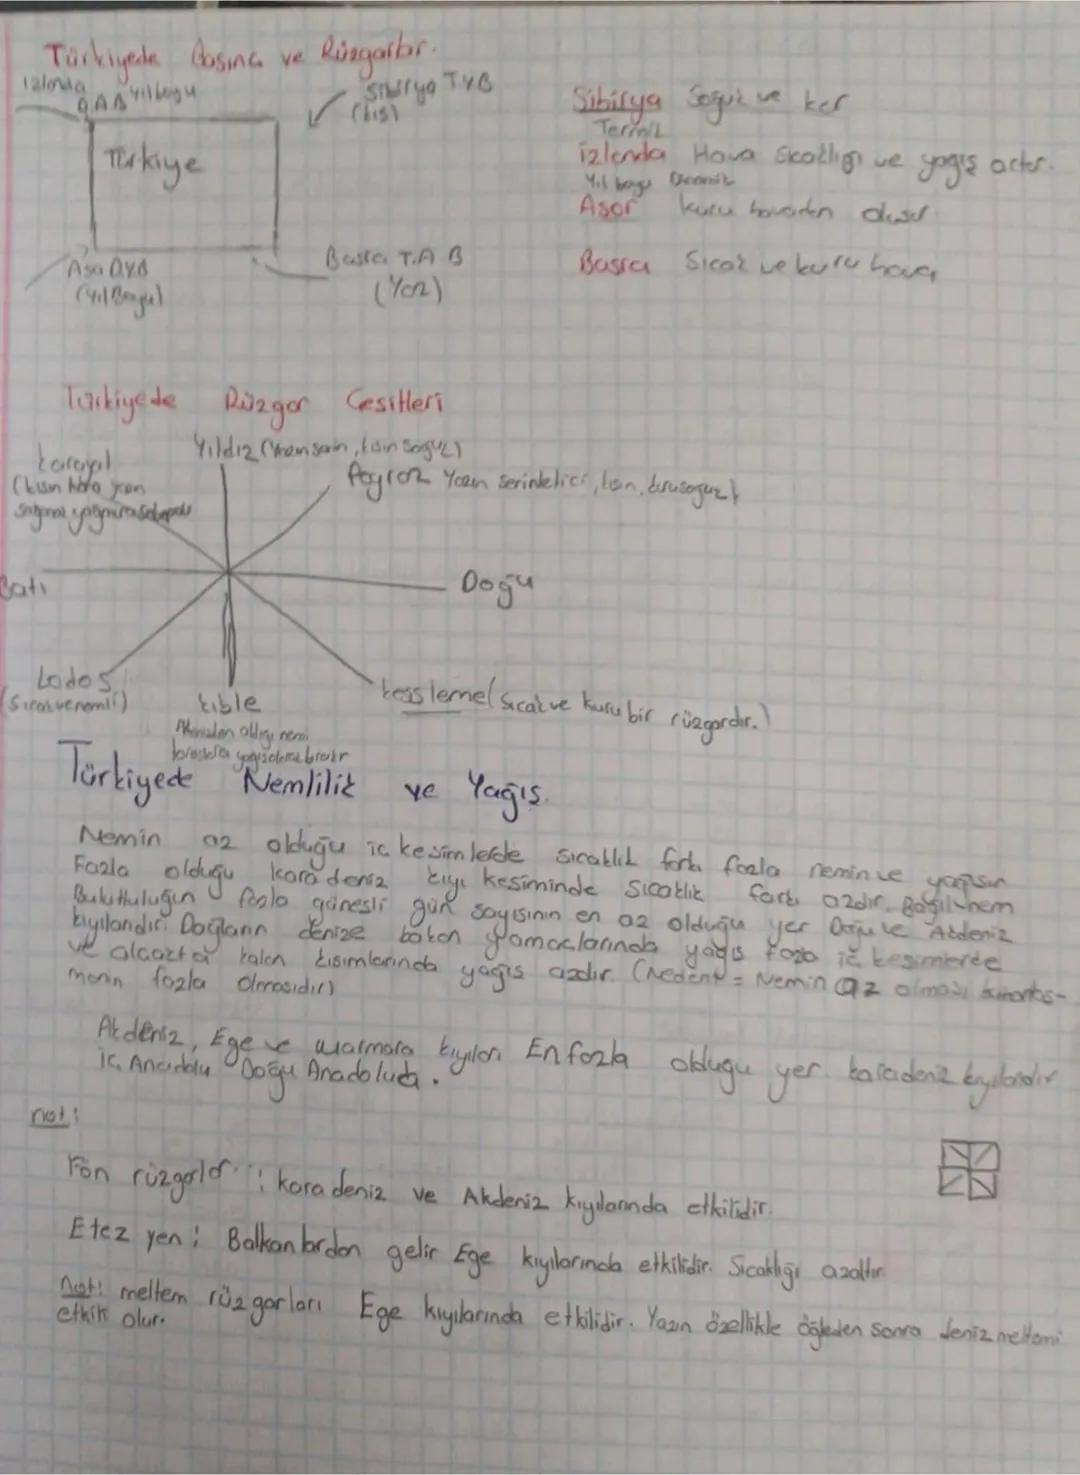 Türkiyede Basınç ve Rüzgarlar.
izlanda
D.A.B Yıl boyu
Sibirya T.Y.B
(kış)
Türkiye
Asor D.Y.B
(Yıl Boyu)
Basra T.A.B
(Yaz)
Sibirya Soğuk ve kar
Termik
izlanda Hava Sıcaklığı ve yağış artar.
Yıl boyu Dinamik
Asor kuru havadan
Basra Sıcak ve kuru hava
Türkiyede Rüzgar Cesitleri
Yıldız (Yazın serin, kışın soğuk)
karayel
(kışın kara yazın
sağnak yağmura sebep olur
Poyraz Yazın serinletici, kışın, kurusoguk)
Batı
Doğu
Lodos
(Sıcak ve nemli)
kıble
Akdenizden aldığı nemi
toroslara yağış olarak bırakır
kesisleme (sıcak ve kuru bir rüzgardır.)
Türkiyede Nemlilik ve Yağış.
Nemin az olduğu iç kesimlerde sıcaklık farkı fazla nemin ve yağışın
Fazla olduğu karadeniz kıyı kesiminde sıcaklık farkı azdır. Bağıl nem
Bulutluluğun fazla güneşli gün sayısının en az olduğu yer Doğu ve Akdeniz
kıyılarıdır. Dağların denize bakan yamaçlarında yağış fazla iç kesimlerde
ve alçakta kalan kısımlarında yağış azdır. (Nedeni = Nemin az olması
fazla olmasıdır)
Akdeniz, Ege ve marmara kıyıları En fazla olduğu yer karadeniz kıyılarıdır
iç Anadolu Doğu Anadoluda.
not:
Fön rüzgarlar : karadeniz ve Akdeniz kıyılarında etkilidir.
Etez yen : Balkanlardan gelir Ege kıyılarında etkilidir. Sıcaklığı azaltır
Not: meltem rüzgarları Ege kıyılarında etkilidir. Yazın özellikle öğleden sonra deniz meltemi
etkili olur.